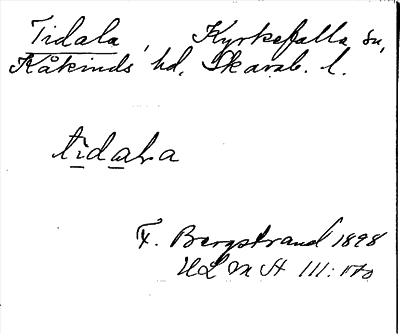 Tidala, Kyrkefalla sn,
Kåkinds hd. Skarab. l.
tidala
F. Bergstrand 1898
ULMA 111:170